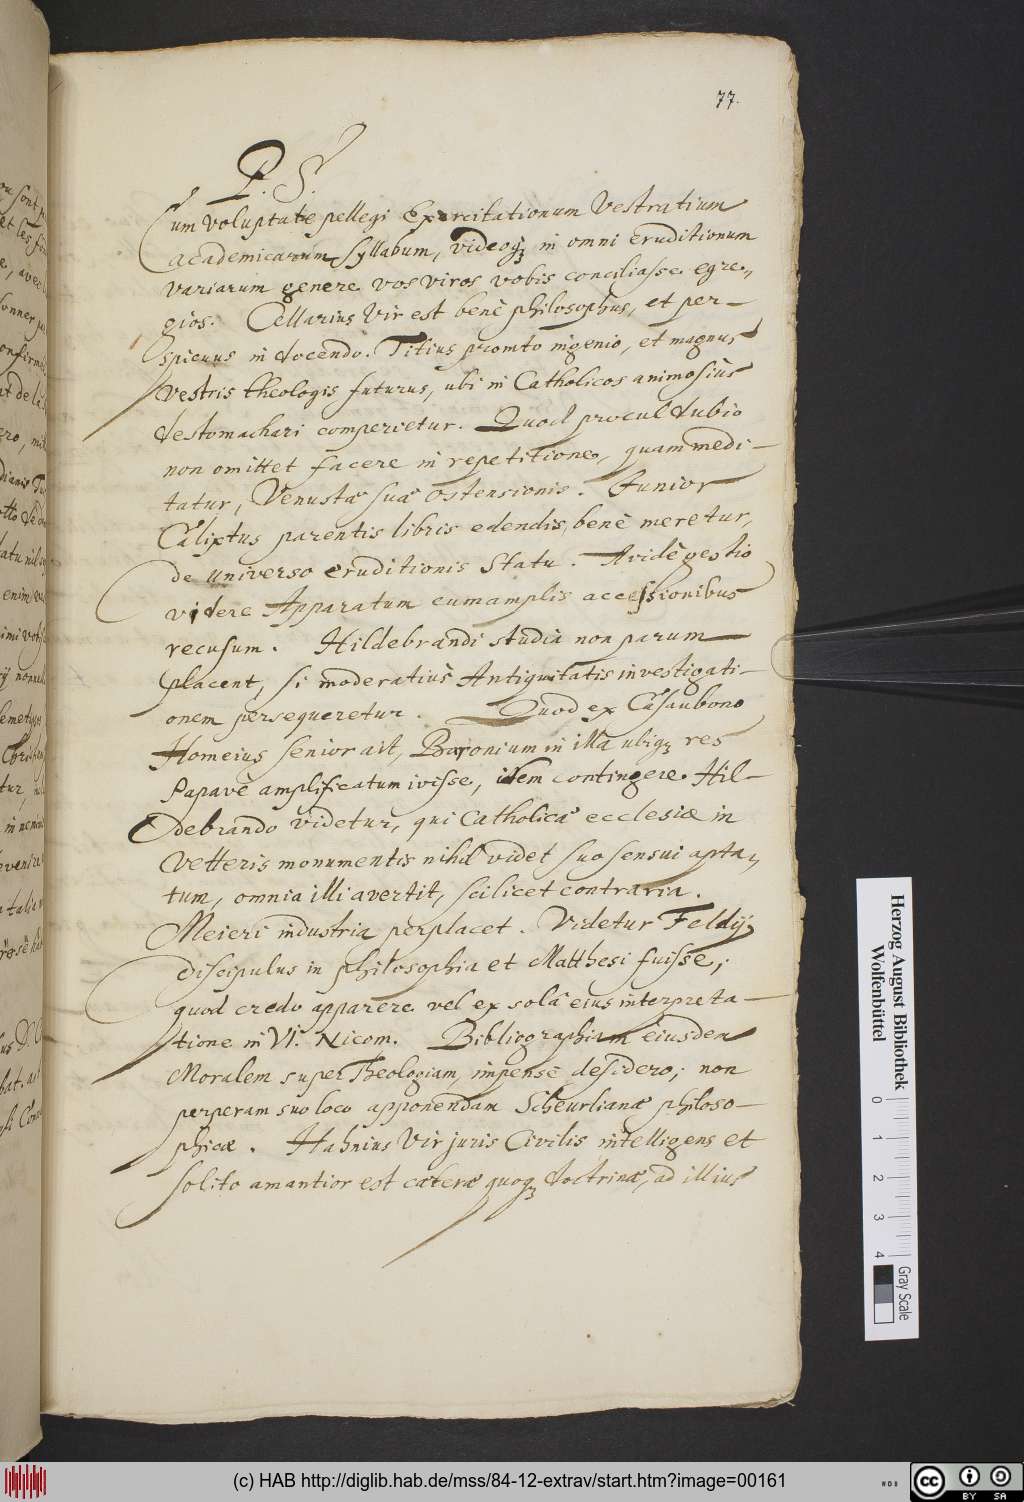 77.
P. S.
Cum voluptate pellegi Exercitationum Vestratium
academicarum syllabum, videoq; in omni eruditionum
variarum genere vos viros vobis conciliasse egre„
gios. Cellarius Vir est benè philosophus, et per-
spicuus in docendo. Titius promto ingenio, et magnus
vestris theologis futurus, ubi in Catholicos animosiùs
destomachari comperietur. Quod procul dubio
non omittet facere in repetitione, quam medi-
tatur, Venustæ suæ ostensionis. Junior
Calixtus parentis libris edendis, benè meretur,
de universo eruditionis Statu. Avidè gestio
videre Apparatum cum amplis accessionibus
recusum. Hildebrandi studia non parum
placent, si moderatiùs Antiquitatis investigati-
onem persequeretur. Quod ex Casaubono
Homeius senior ait, Baronium in illa ubiq; res
Papavè amplificatum ivisse, idem contingere Hil-
debrando videtur, qui Catholicæ ecclesiæ in
Vetteris monumentis nihil videt suo sensui apta„
tum, omnia illi avertit, scilicet contraria.
Meieri industria perplacet. Videtur Feldij
discipulus in philosophia et Matthesi fuisse;
quod credo apparere vel ex solâ eius interpreta-
tione in VI. Nicom. Bibliographiam eiusdem
Moralem super Theologiam, impensè desidero; non
perperam suo loco apponendam Scheurlianæ philoso-
phicæ. Hahnius Vir juris Civilis intelligens et
solito amantior est cæteræ quoq; doctrinæ, ad illius
Herzog August Bibliothek
Wolfenbüttel
0 1 2 3 4
Gray Scale
(c) HAB http://diglib.hab.de/mss/84-12-extrav/start.htm?image=00161
CC BY SA